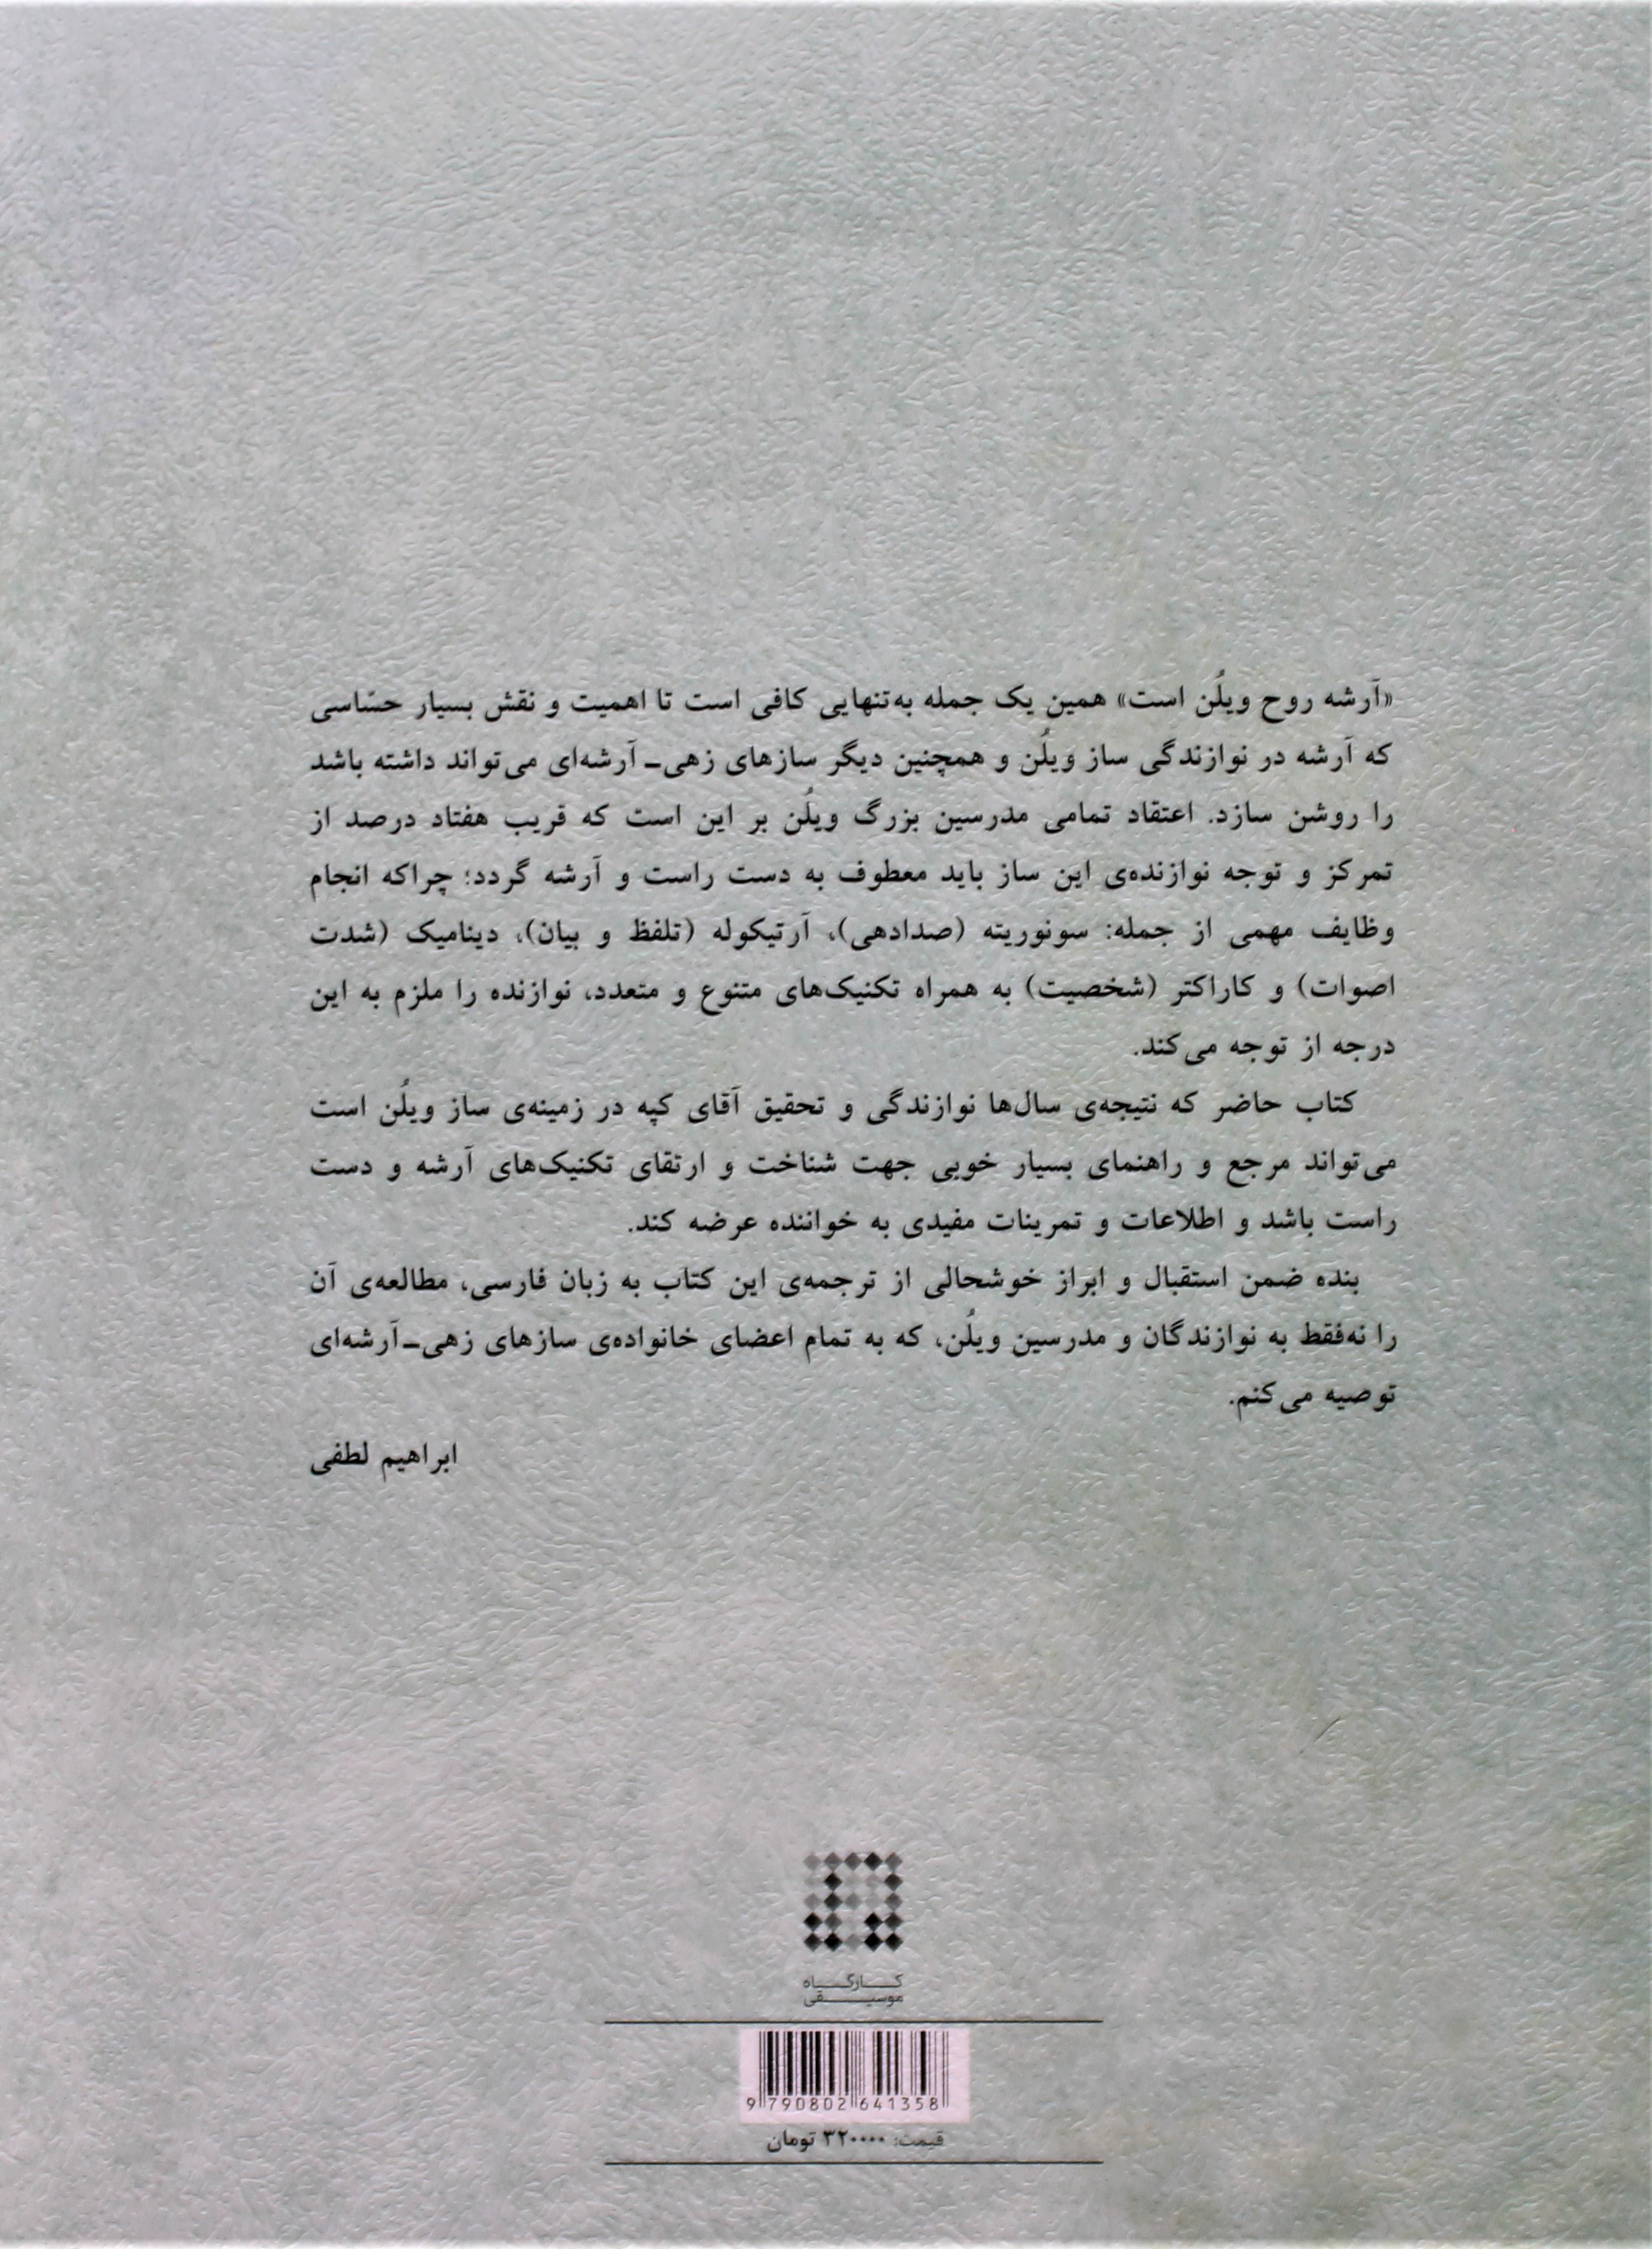 «آرشه روح ویلُن است» همین یک جمله به‌تنهایی کافی است تا اهمیت و نقش بسیار حسّاسی
که آرشه در نوازندگی ساز ویلُن و همچنین دیگر سازهای زهی‌ـ آرشه‌ای می‌تواند داشته باشد
را روشن سازد. اعتقاد تمامی مدرسین بزرگ ویلُن بر این است که قریب هفتاد درصد از
تمرکز و توجه نوازنده‌ی این ساز باید معطوف به دست راست و آرشه گردد؛ چراکه انجام
وظایف مهمی از جمله: سونوریته (صدادهی)، آرتیکوله (تلفظ و بیان)، دینامیک (شدت
اصوات) و کاراکتر (شخصیت) به همراه تکنیک‌های متنوع و متعدد، نوازنده را ملزم به این
درجه از توجه می‌کند.
کتاب حاضر که نتیجه‌ی سال‌ها نوازندگی و تحقیق آقای کپه در زمینه‌ی ساز ویلُن است
می‌تواند مرجع و راهنمای بسیار خوبی جهت شناخت و ارتقای تکنیک‌های آرشه و دست
راست باشد و اطلاعات و تمرینات مفیدی به خواننده عرضه کند.
بنده ضمن استقبال و ابراز خوشحالی از ترجمه‌ی این کتاب به زبان فارسی، مطالعه‌ی آن
را نه‌فقط به نوازندگان و مدرسین ویلُن، که به تمام اعضای خانواده‌ی سازهای زهی‌ـ‌آرشه‌ای
توصیه می‌کنم.
ابراهیم لطفی
کارگاه
موسیقی
9 790802 641358
قیمت: ۳۲۰۰۰۰ تومان